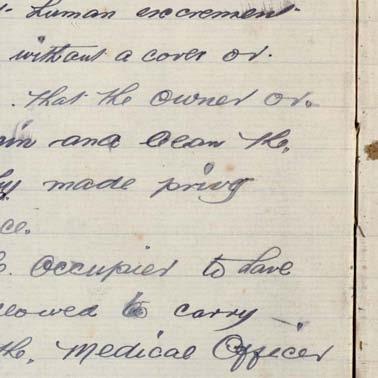 human excrement
without a cover or
that the owner or
and clean the
made privy
ce.
Occupier to have
lowed to carry
the Medical Officer